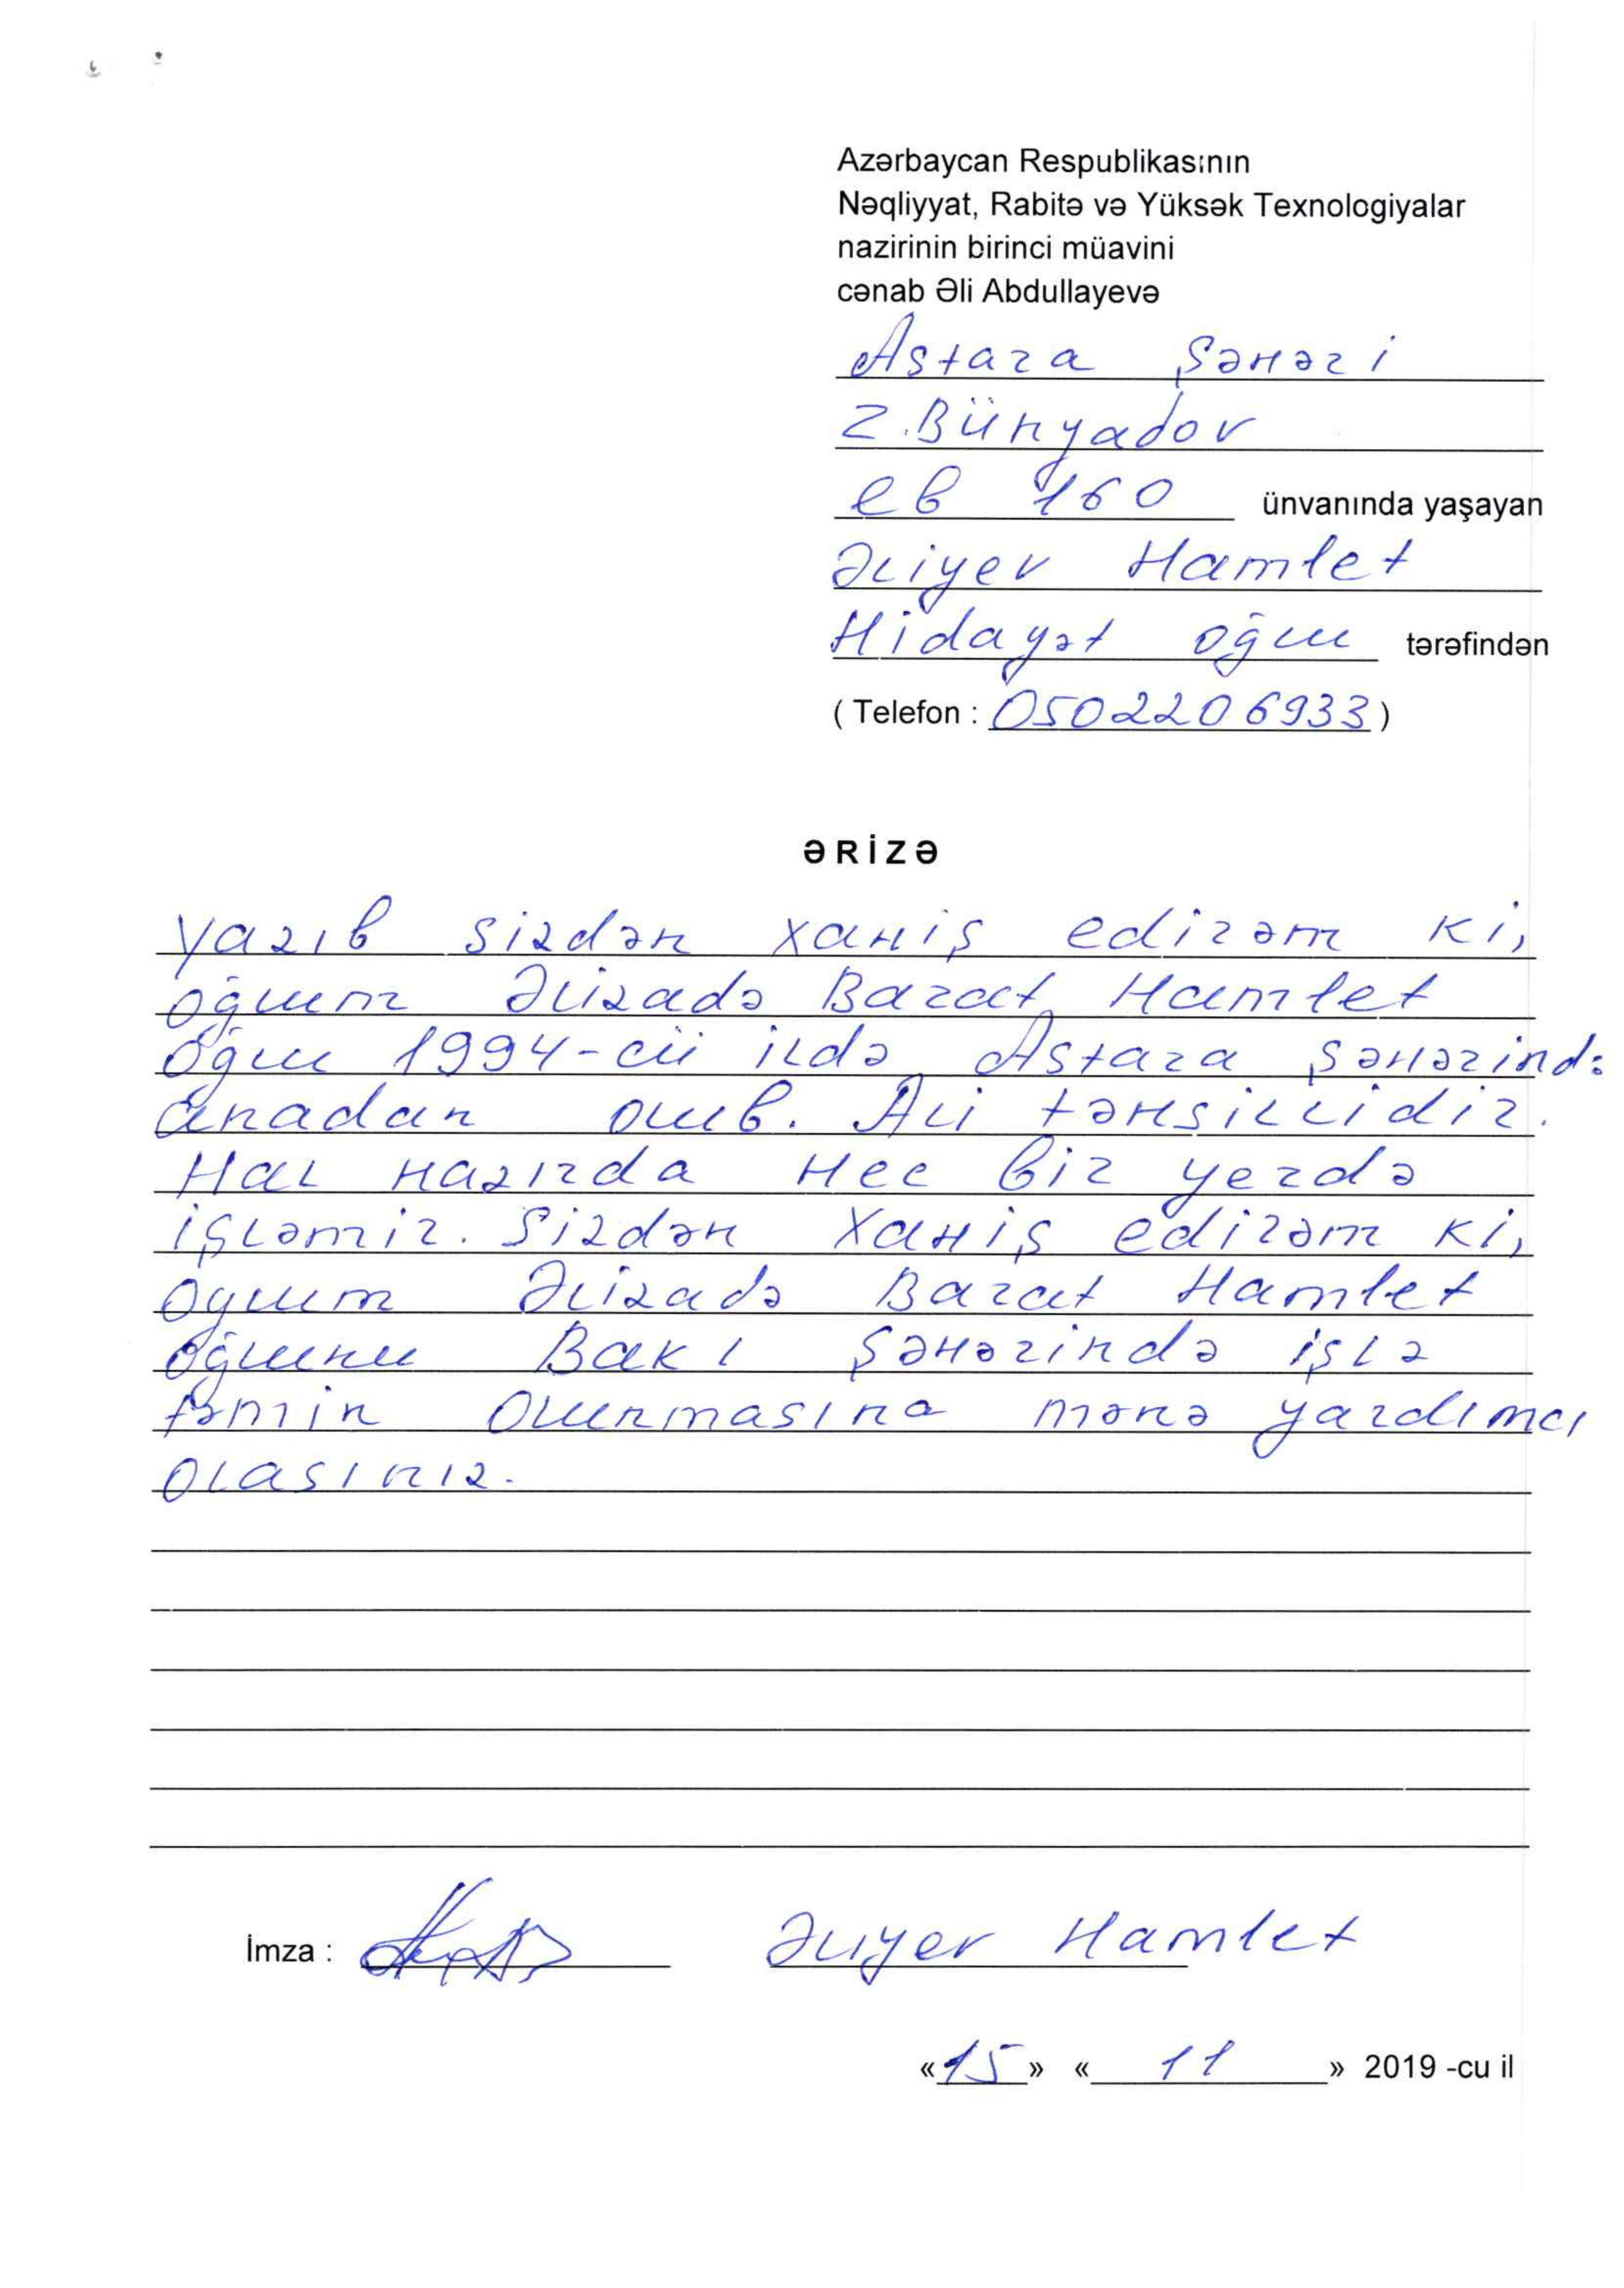 Azərbaycan Respublikasının
Nəqliyyat, Rabitə və Yüksək Texnologiyalar
nazirinin birinci müavini
cənab Əli Abdullayevə
Astara Şəhəri
Z.Bünyadov
ev 160 ünvanında yaşayan
Əliyev Hamlet
Hidayət oğlu tərəfindən
( Telefon : 0502206933 )
ƏRİZƏ
Yazıb sizdən xahiş edirəm ki,
oğlum Əlizadə Barat Hamlet
oğlu 1994-cü ildə Astara şəhərində
anadan olub. Ali təhsillidir.
Hal hazırda Hec bir yerdə
işləmir. Sizdən xahiş edirəm ki,
oğlum Əlizadə Barat Hamlet
oğlunu Bakı Şəhərində işlə
təmin olunmasına mənə yardımcı
olasınız.
İmza : Əliyev Hamlet
«15» «11» 2019 -cu il